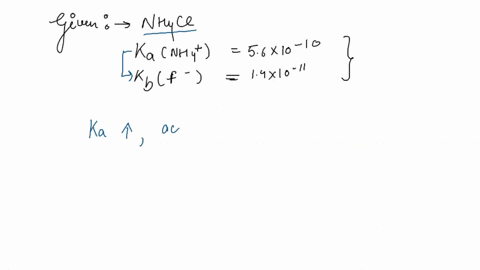 Given: → NH4Cl
Ka (NH4+) = 5.6 x 10-10
Kb (f-) = 1.4 x 10-11
Ka ↑, ac